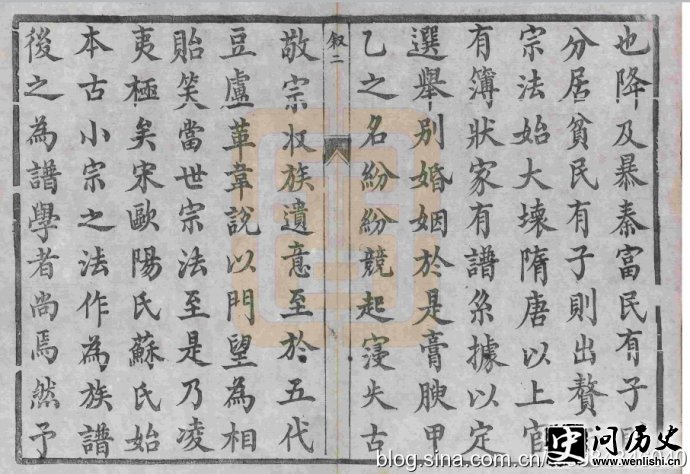 也降及暴秦富民有子
分居貧民有子則出贅
宗法始大壞隋唐以上官
有簿狀家有譜系據以定
選舉別婚姻於是膏腴甲
乙之名紛紛競起寖失古
叙二
敬宗收族遺意至於五代
豆盧革韋說以門望為相
貽笑當世宗法至是乃凌
夷極矣宋歐陽氏蘇氏始
本古小宗之法作為族譜
後之為譜學者尚焉然予
问历史
www.wenlishi.cn
blog.sina.com.cn